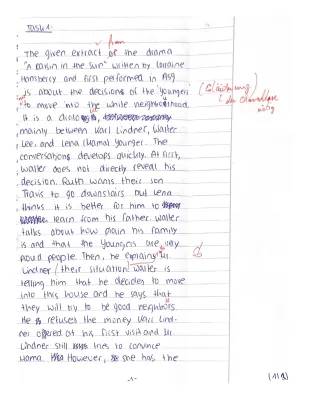 Task 1
from
The given extract of the drama
"A raisin in the sun" written by Lorraine
Hansberry and first performed in 1959
is about the decisions of the Younger
to move into the white neighborhood.
It is a dialogue,
mainly between Karl Lindner, Walter
Lee, and Lena (Mama) Younger. The
conversations develops quickly. At first,
Walter does not directly reveal his
decision. Ruth wants their son
Travis to go downstairs but Lena
thinks it is better for him to
learn from his father. Walter
talks about how plain his family
is and that the Youngers are very
proud people. Then, he explains
Lindner (their situation) Walter is
telling him that he decides to move
into this house and he says that
they will try to be good neighbors.
He refuses the money Karl Lind-
ner offered at his first visit and
Lindner still tries to convince
Mama. However, she has the
-1-